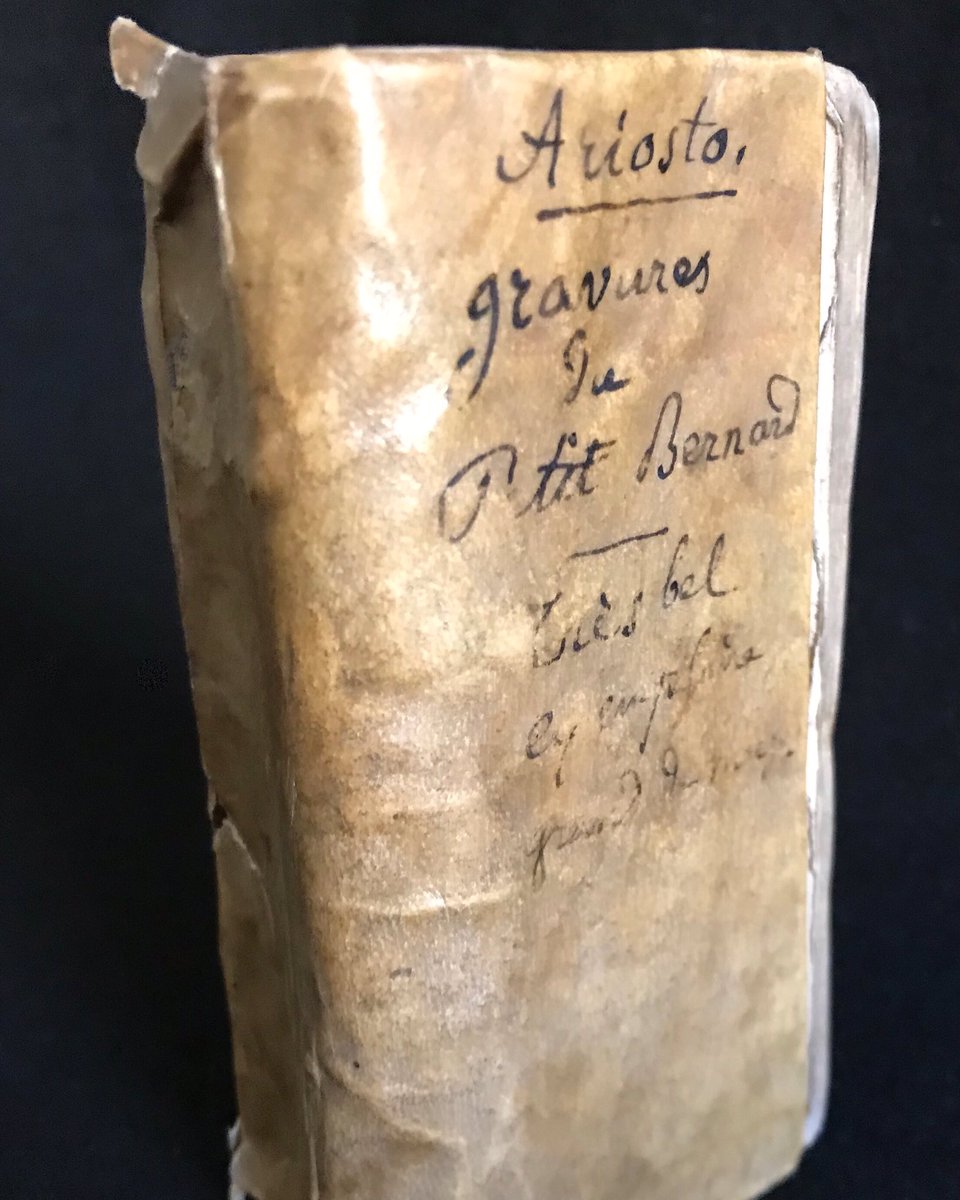 Ariosto.
gravures
du
Petit Bernard
très bel
exemplaire
grand de marges